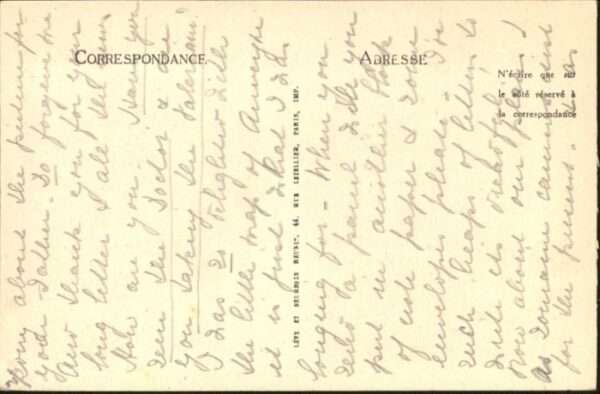 CORRESPONDANCE
ADRESSE
N'écrire que sur
le côté réservé à
la correspondance
LÉVY ET NEURDEIN RÉUNIS, 44, RUE LETELLIER, PARIS, IMP.
sorry about the picture for
your Father. Do forgive me
And thank you for your
long letter & all the news
How are you. Have you
seen the Doctor & are
you taking the Valerian?
I was so delighted with
the little map of Auvergne
it is just what I was
longing for. When you
send a parcel will you
put in another block
of note paper & some
envelopes please. I've
such heaps of letters to
write its dreadful.
Now about our plans. I
as cannot exist
for the present.